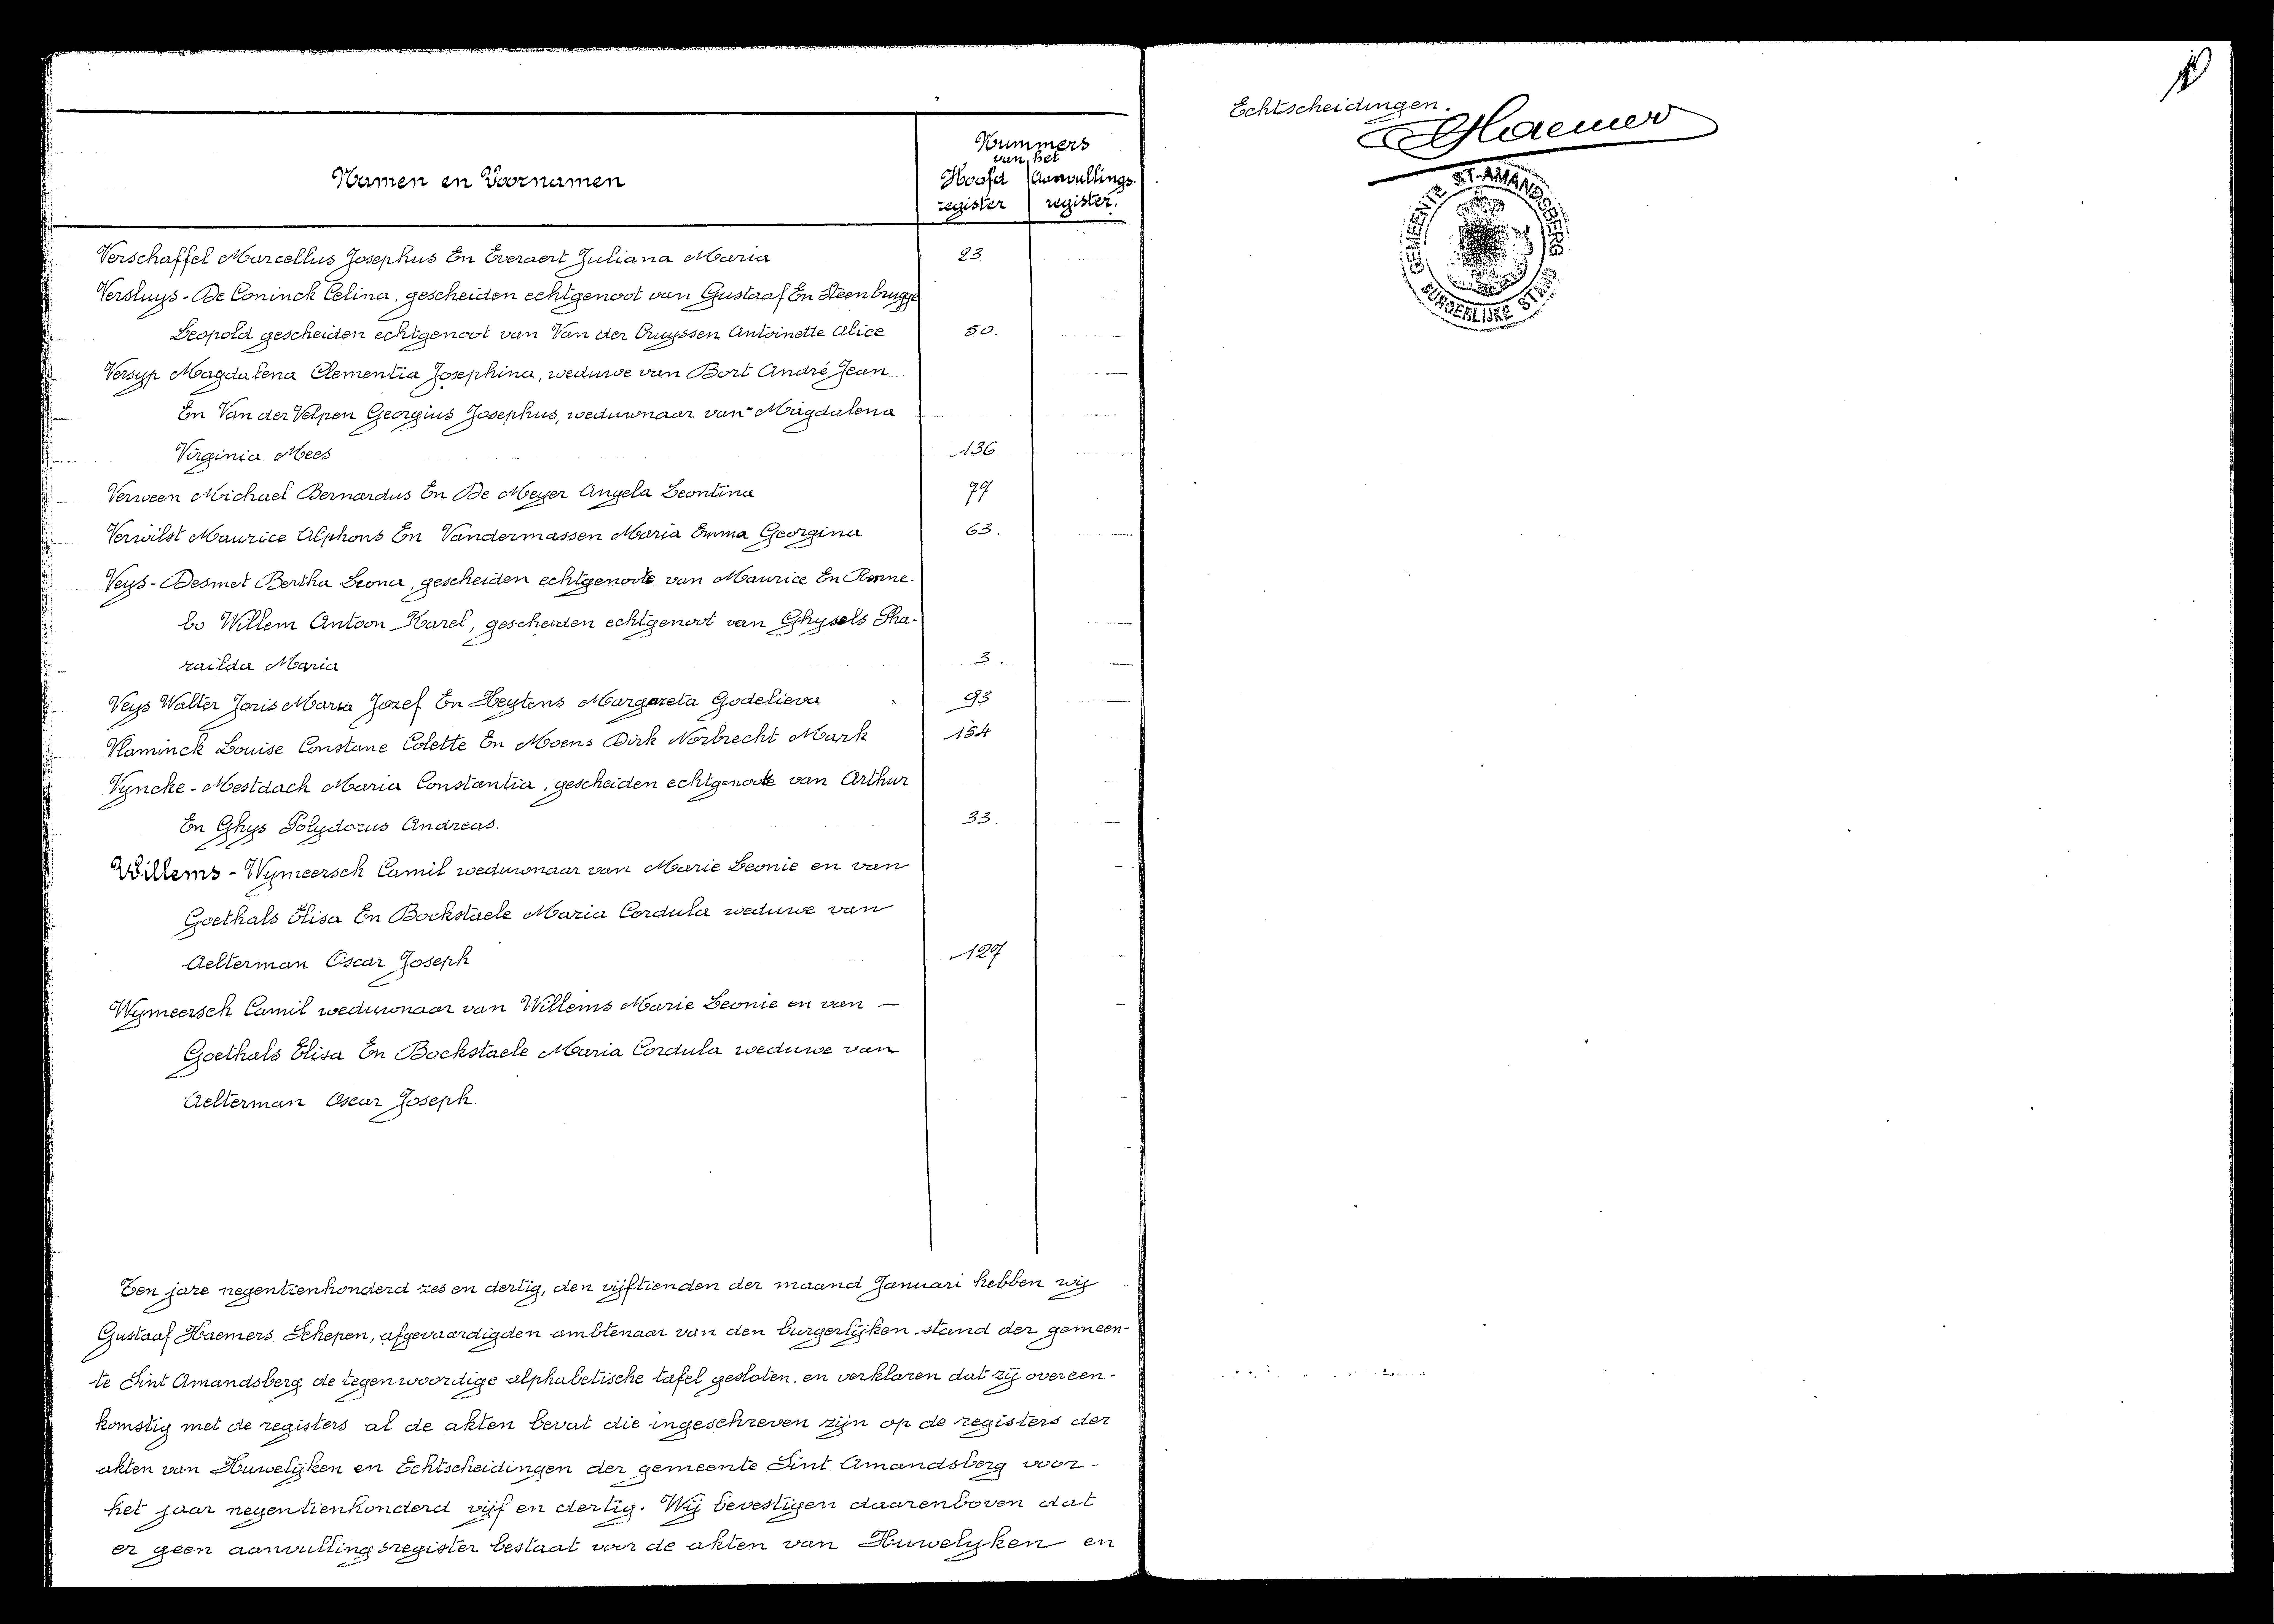 Namen en Voornamen
Nummers
van het
Hoofd register
Aanvullings register.
Verschaffel Marcellus Josephus En Everaert Juliana Maria 23
Versluys - De Coninck Celina, gescheiden echtgenoot van Gustaaf En Steenbrugge
Leopold gescheiden echtgenoot van Van der Cruyssen Antoinette Alice 50.
Versyp Magdalena Clementia Josephina, weduwe van Bort André Jean
En Van der Velpen Georgius Josephus, weduwnaar van Magdalena
Virginia Mees 136
Verween Michael Bernardus En De Meyer Angela Leontina 77
Verwilst Maurice Alphons En Vandermassen Maria Emma Georgina 63.
Veys - Desmet Bertha Leona, gescheiden echtgenoote van Maurice En Ronne-
bo Willem Antoon Karel, gescheiden echtgenoot van Ghysels Pha-
railda Maria 3.
Veys Walter Joris Maria Jozef En Heytens Margareta Godelieva 93
Vlaminck Louise Constane Colette En Moens Dirk Norbrecht Mark 154
Vyncke - Mestdach Maria Constantia, gescheiden echtgenoote van Arthur
En Ghys Polydorus Andreas. 33.
Willems - Wymeersch Camil weduwnaar van Marie Leonie en van
Goethals Elisa En Bockstaele Maria Cordula weduwe van
Aelterman Oscar Joseph 127
Wymeersch Camil weduwnaar van Willems Marie Leonie en van —
Goethals Elisa En Bockstaele Maria Cordula weduwe van
Aelterman Oscar Joseph.
Ten jare negentienhonderd zes en dertig, den vijftienden der maand Januari hebben wij
Gustaaf Haemers Schepen, afgevaardigden ambtenaar van den burgerlijken stand der gemeen-
te Sint Amandsberg de tegenwoordige alphabetische tafel gesloten en verklaren dat zij overeen-
komstig met de registers al de akten bevat die ingeschreven zijn op de registers der
akten van Huwelijken en Echtscheidingen der gemeente Sint Amandsberg voor -
het jaar negentienhonderd vijf en dertig. Wij bevestigen daarenboven dat
er geen aanvullingsregister bestaat voor de akten van Huwelyken en
Echtscheidingen.
GHaemers
GEMEENTE ST-AMANDSBERG
BURGERLIJKE STAND